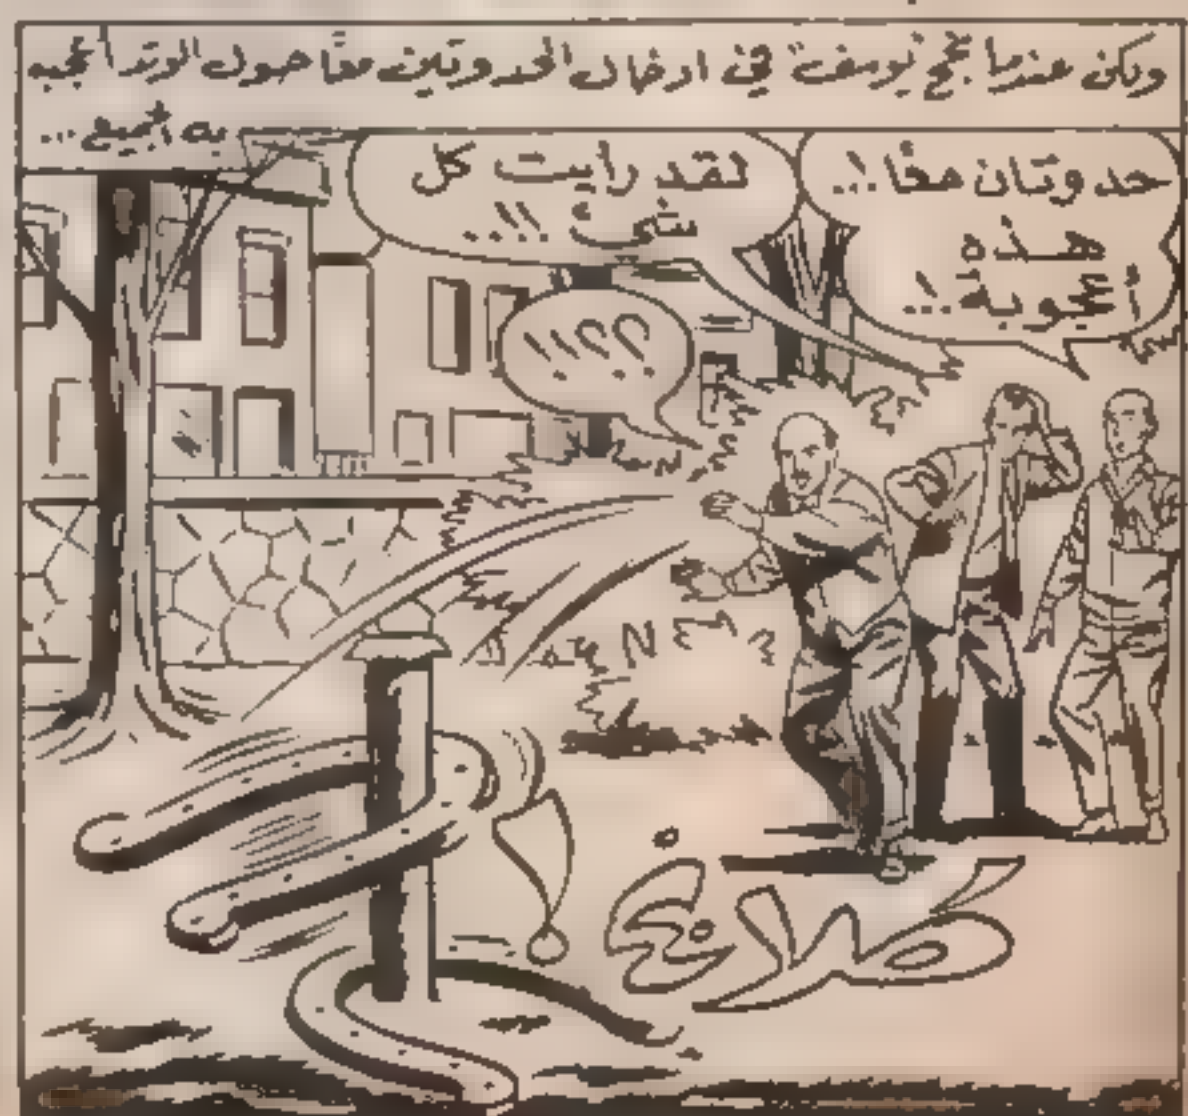 ولكن عندما نجح "يوسف" في ادخال الحدوتين معًا حول الوتد اعجب
به الجميع...
حدوتان معًا!..
هذه
أعجوبة!..
لقد رأيت كل
شيء!!..
؟؟!!!
كلانغ!